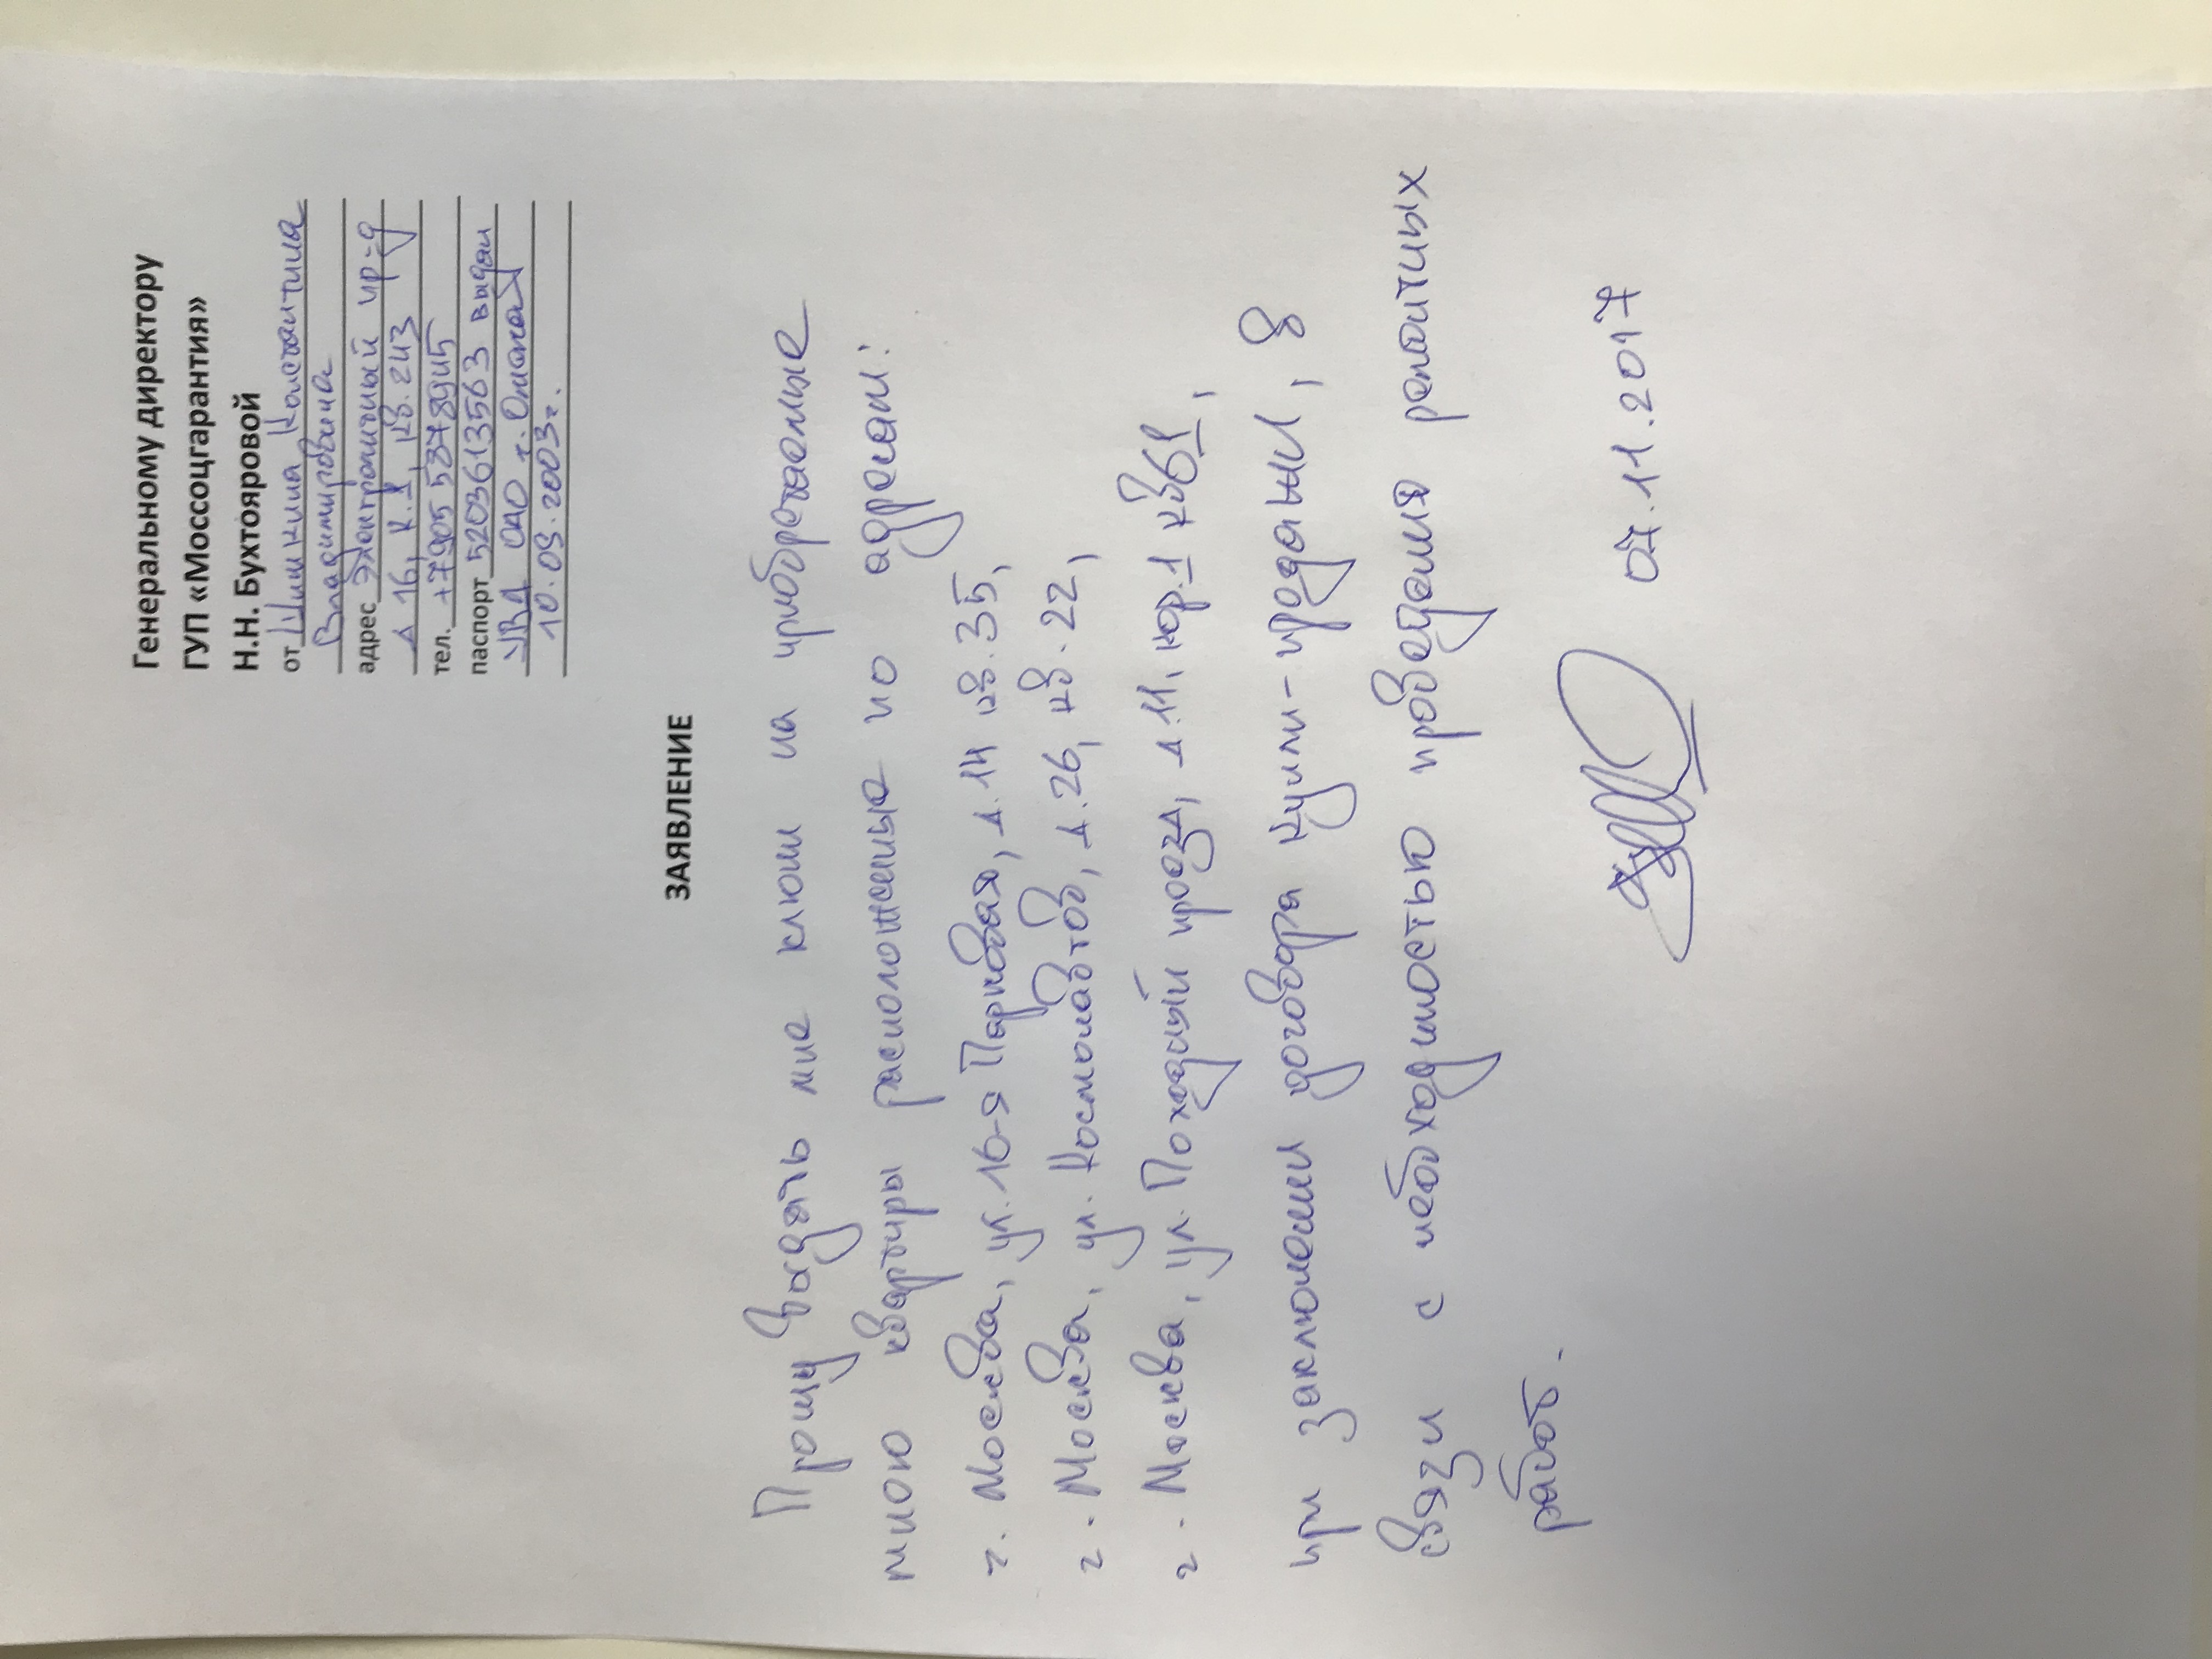 Генеральному директору
ГУП «Моссоцгарантия»
Н.Н. Бухтояровой
от Шишкина Константина
Владимировича
адрес Электроличный пр-д
д 16, к.1, кв. 243
тел. +7905 5878945
паспорт 5203613563 выдан
УВД ОАО г. Омска
10.09.2003г.
ЗАЯВЛЕНИЕ
Прошу выдать мне ключи на приобретаемые
мною квартиры расположенные по адресам:
г. Москва, ул. 16-я Парковая, д.14 кв.35,
г. Москва, ул. Космонавтов, д.26, кв.22,
г. Москва, ул. Походный проезд, д.11, кор.1 кв61,
при заключении договора купли-продажи, в
связи с необходимостью проведения ремонтных
работ.
07.11.2017